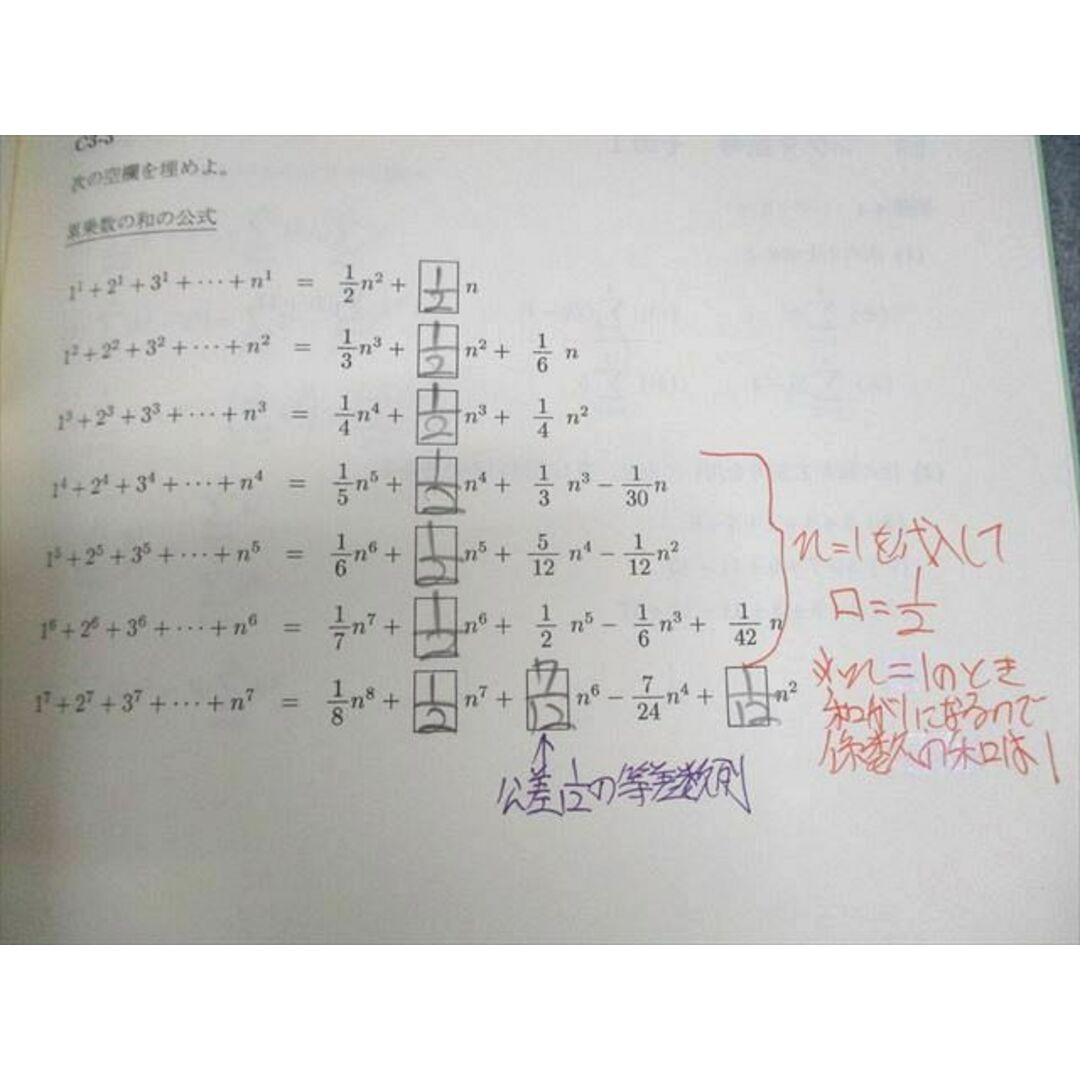 C3-3
次の空欄を埋めよ。
累乗数の和の公式
1¹ + 2¹ + 3¹ + ⋯ + n¹ = 1/2 n² + 1/2 n
1² + 2² + 3² + ⋯ + n² = 1/3 n³ + 1/2 n² + 1/6 n
1³ + 2³ + 3³ + ⋯ + n³ = 1/4 n⁴ + 1/2 n³ + 1/4 n²
1⁴ + 2⁴ + 3⁴ + ⋯ + n⁴ = 1/5 n⁵ + 1/2 n⁴ + 1/3 n³ − 1/30 n
1⁵ + 2⁵ + 3⁵ + ⋯ + n⁵ = 1/6 n⁶ + 1/2 n⁵ + 5/12 n⁴ − 1/12 n²
1⁶ + 2⁶ + 3⁶ + ⋯ + n⁶ = 1/7 n⁷ + 1/2 n⁶ + 1/2 n⁵ − 1/6 n³ + 1/42 n
1⁷ + 2⁷ + 3⁷ + ⋯ + n⁷ = 1/8 n⁸ + 1/2 n⁷ + 7/12 n⁶ − 7/24 n⁴ + 1/12 n²
n=1を代入して
□=1/2
※n=1のとき
和が1になるので
係数の和は1
↑
公差1/12の等差数列